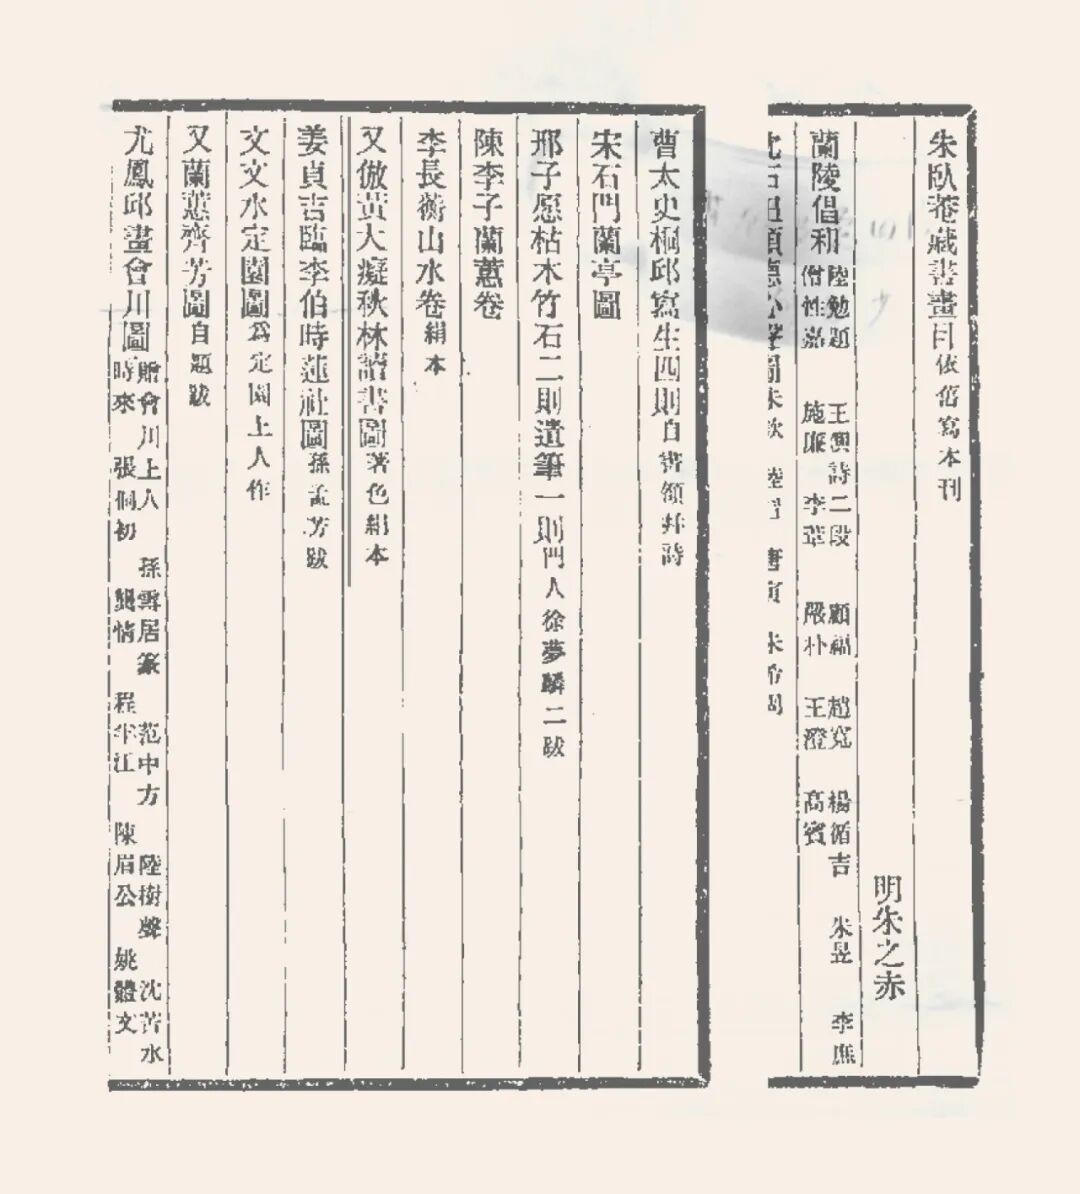 朱臥菴藏書畫目依舊寫本刊
明朱之赤
蘭陵倡和
陸勉題 王㒜詩二段 顧福 趙寬 楊循吉 朱昱 李廡
僧性嘉 施廉 李葦 嚴朴 王澄 高賓
曹太史桐邱寫生四則自書領并詩
宋石門蘭亭圖
邢子愿枯木竹石二則遺筆一則門人徐夢麟二跋
陳李子蘭蕙卷
李長蘅山水卷絹本
又倣黃大癡秋林讀書圖著色絹本
姜貞吉臨李伯時蓮社圖孫孟芳跋
文文水定園圖為定園上人作
又蘭蕙齊芳圖自題跋
尤鳳邱畫會川圖
贈會川上人 孫雪居篆 范中方 陸樹聲 沈苦水
時來 張侗初 情 程 江 陳眉公 姚體文